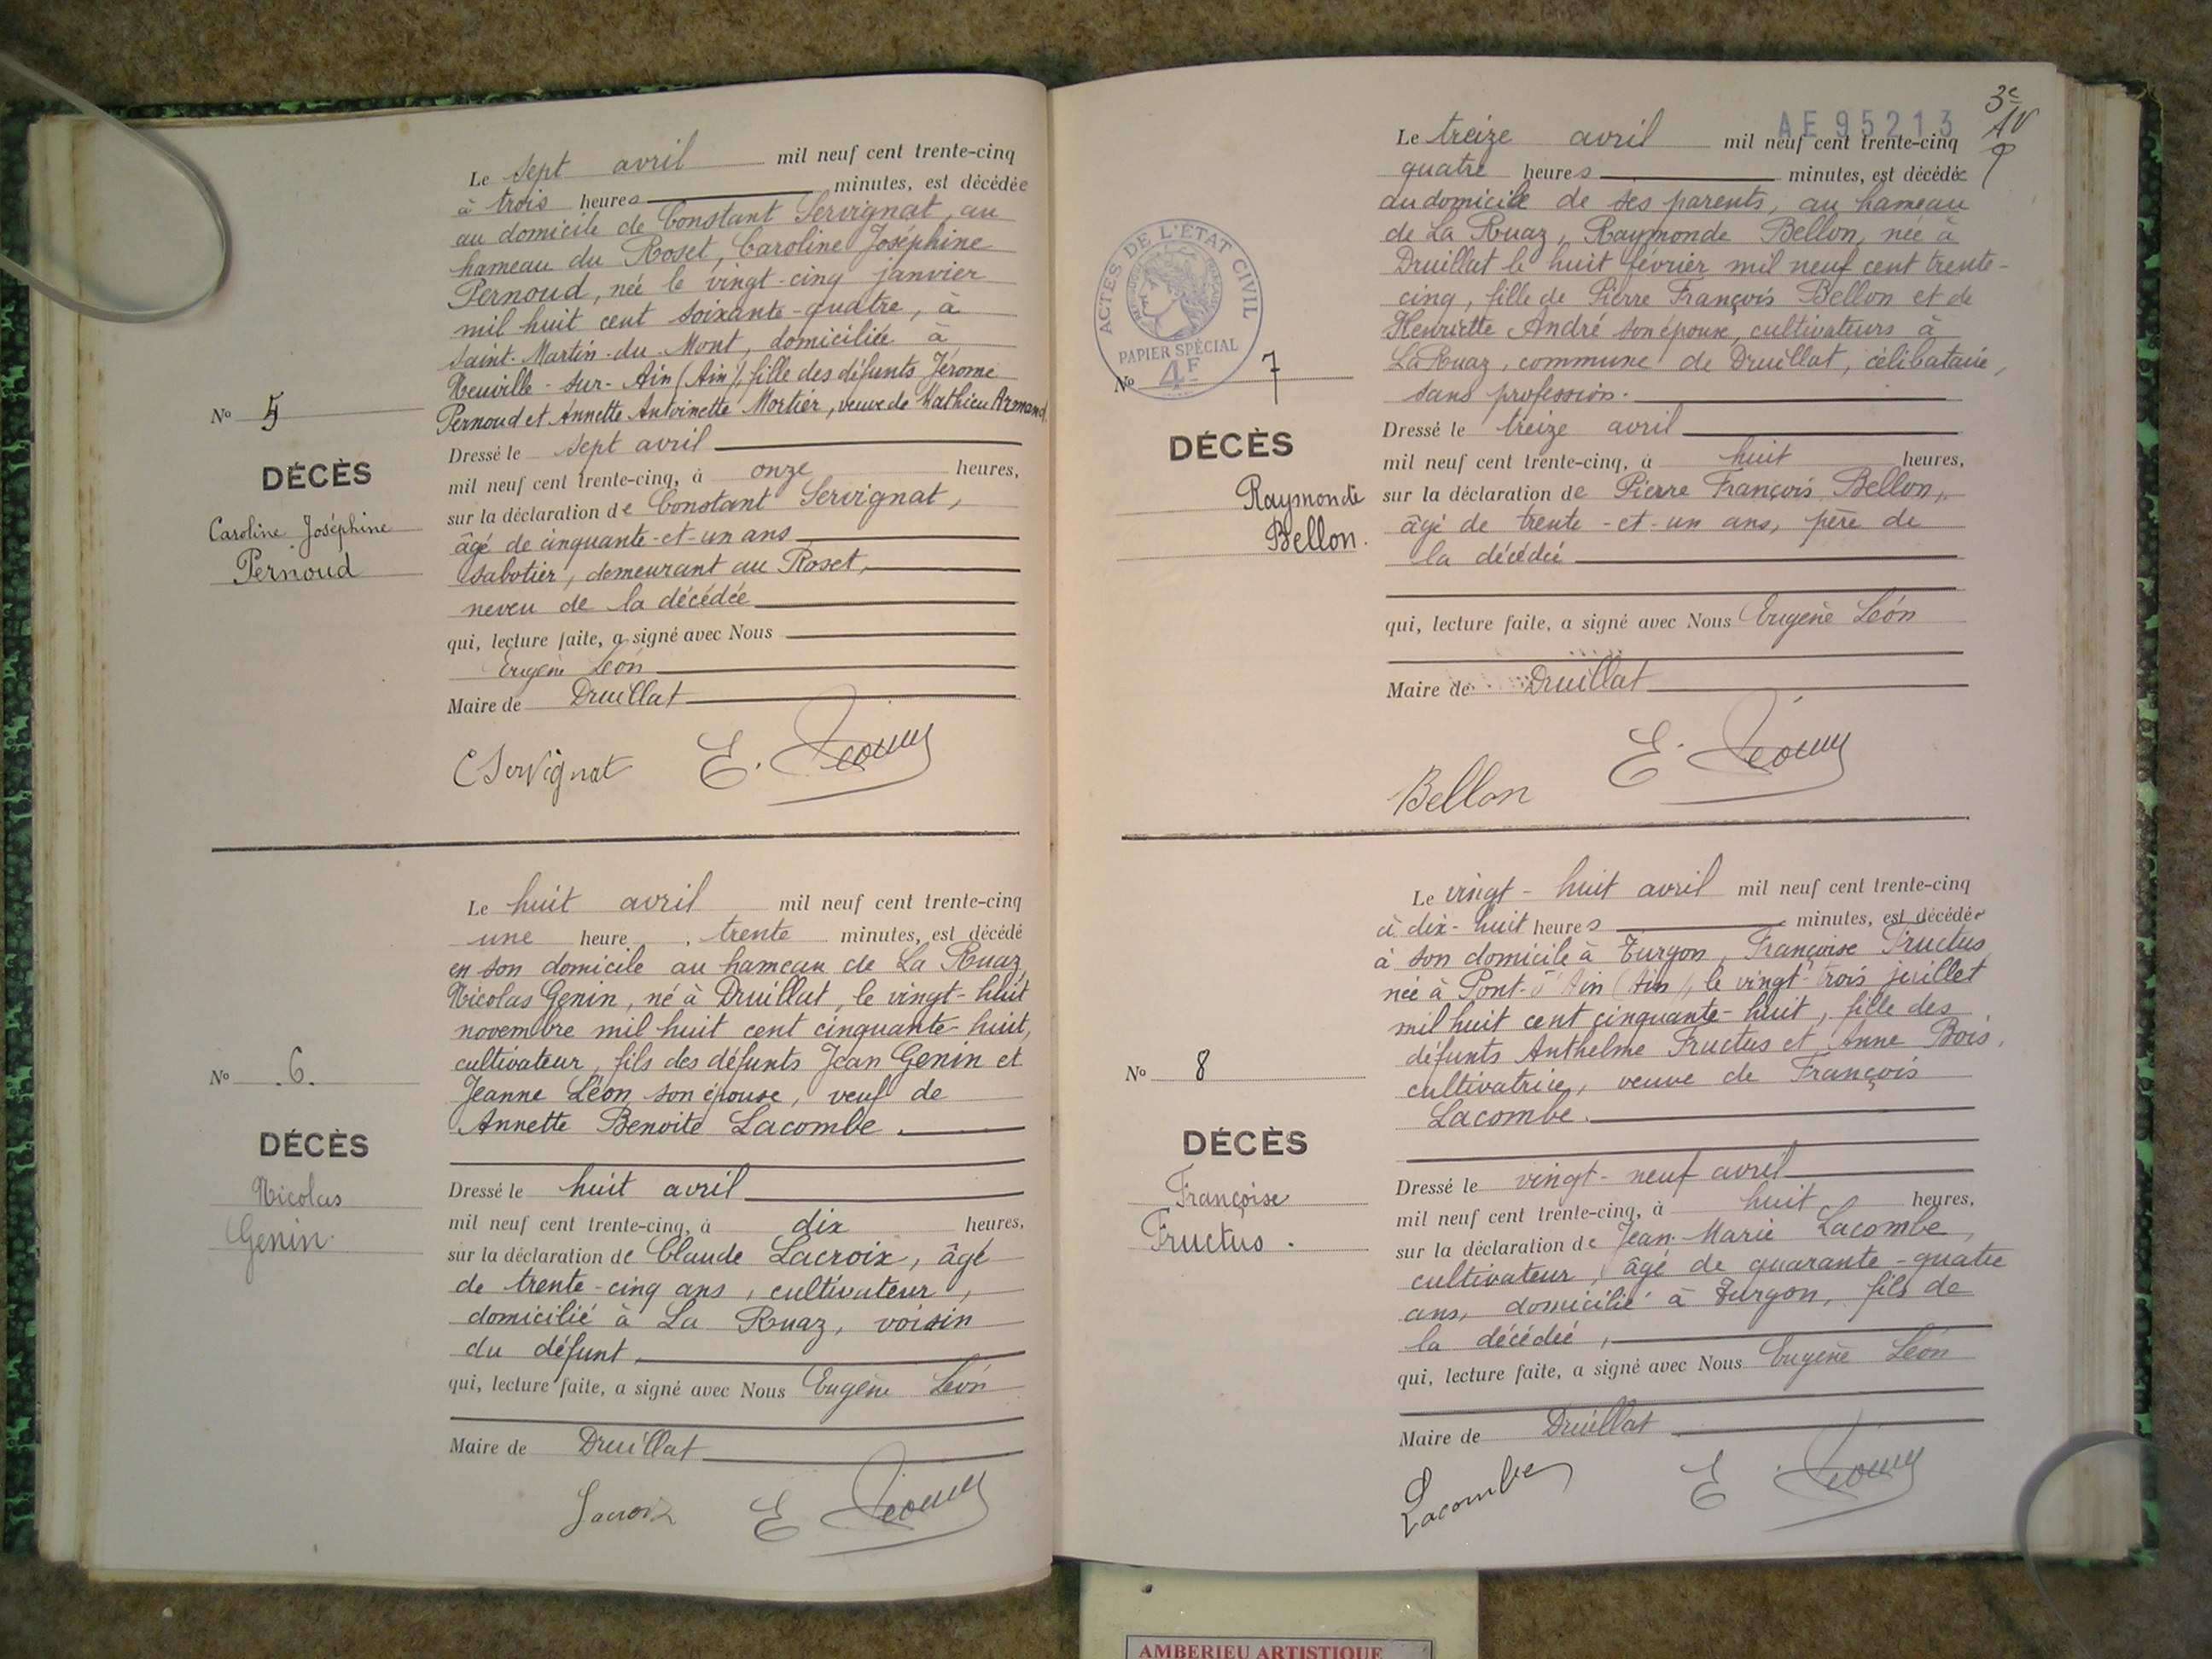 Le sept avril mil neuf cent trente-cinq
à trois heures minutes, est décédée
au domicile de Constant Servignat, au
hameau du Roset, Caroline Joséphine
Pernoud, née le vingt-cinq janvier
mil huit cent soixante-quatre, à
Saint-Martin-du-Mont, domiciliée à
Neuville-sur-Ain (Ain), fille des défunts Jérome
Pernoud et Annette Antoinette Mortier, veuve de Mathieu Armand
No 5
DÉCÈS
Caroline Joséphine
Pernoud
Dressé le sept avril
mil neuf cent trente-cinq, à onze heures,
sur la déclaration de Constant Servignat,
âgé de cinquante-et-un ans
sabotier, demeurant au Roset,
neveu de la décédée
qui, lecture faite, a signé avec Nous
Eugène Léon
Maire de Druillat
C Servignat E. Léon
Le huit avril mil neuf cent trente-cinq
une heure, trente minutes, est décédé
en son domicile au hameau de La Ruaz
Nicolas Genin, né à Druillat, le vingt-huit
novembre mil huit cent cinquante-huit,
cultivateur, fils des défunts Jean Genin et
Jeanne Léon son épouse, veuf de
Annette Benoite Lacombe.
No 6.
DÉCÈS
Nicolas
Genin.
Dressé le huit avril
mil neuf cent trente-cinq, à dix heures,
sur la déclaration de Claude Lacroix, âgé
de trente-cinq ans, cultivateur,
domicilié à La Ruaz, voisin
du défunt,
qui, lecture faite, a signé avec Nous Eugène Léon
Maire de Druillat
Lacroix E Léon
3e
AE95213
Le treize avril mil neuf cent trente-cinq
quatre heures minutes, est décédée
au domicile de ses parents, au hameau
de La Ruaz, Raymonde Bellon, née à
Druillat le huit février mil neuf cent trente-
cinq, fille de Pierre François Bellon et de
Henriette André son épouse, cultivateurs à
La Ruaz, commune de Druillat, célibataire,
sans profession.
ACTES DE L'ÉTAT CIVIL
PAPIER SPÉCIAL
4F
No 7
DÉCÈS
Raymonde
Bellon.
Dressé le treize avril
mil neuf cent trente-cinq, à huit heures,
sur la déclaration de Pierre François Bellon,
âgé de trente-et-un ans, père de
la décédée
qui, lecture faite, a signé avec Nous Eugène Léon
Maire de Druillat
Bellon E. Léon
Le vingt-huit avril mil neuf cent trente-cinq
à dix-huit heures minutes, est décédée
à son domicile à Turgon, Françoise Fructus
née à Pont-d'Ain (Ain), le vingt-trois juillet
mil huit cent cinquante-huit, fille des
défunts Anthelme Fructus et Anne Bois,
cultivatrice, veuve de François
Lacombe.
No 8
DÉCÈS
Françoise
Fructus.
Dressé le vingt-neuf avril
mil neuf cent trente-cinq, à huit heures,
sur la déclaration de Jean-Marie Lacombe,
cultivateur, âgé de quarante-quatre
ans, domicilié à Turgon, fils de
la décédée,
qui, lecture faite, a signé avec Nous Eugène Léon
Maire de Druillat
Lacombe E Léon
AMBERIEU ARTISTIQUE